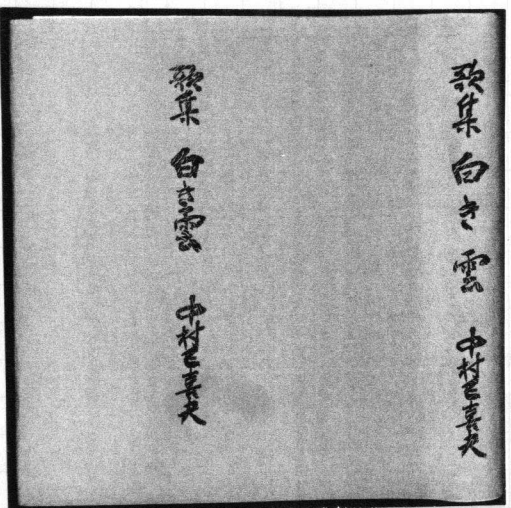 歌集 白き雲 中村已喜夫
歌集 白き雲 中村已喜夫